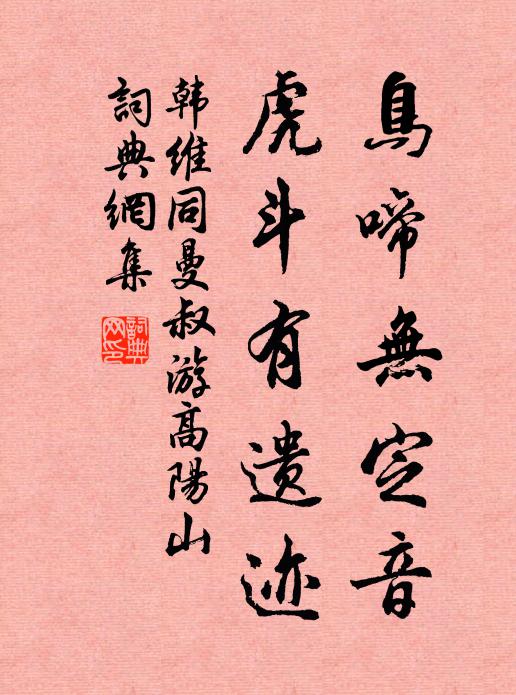 鳥啼無定音
虎斗有遗迹
韩維同曼叔游高陽山
詞典網集
詞典网印